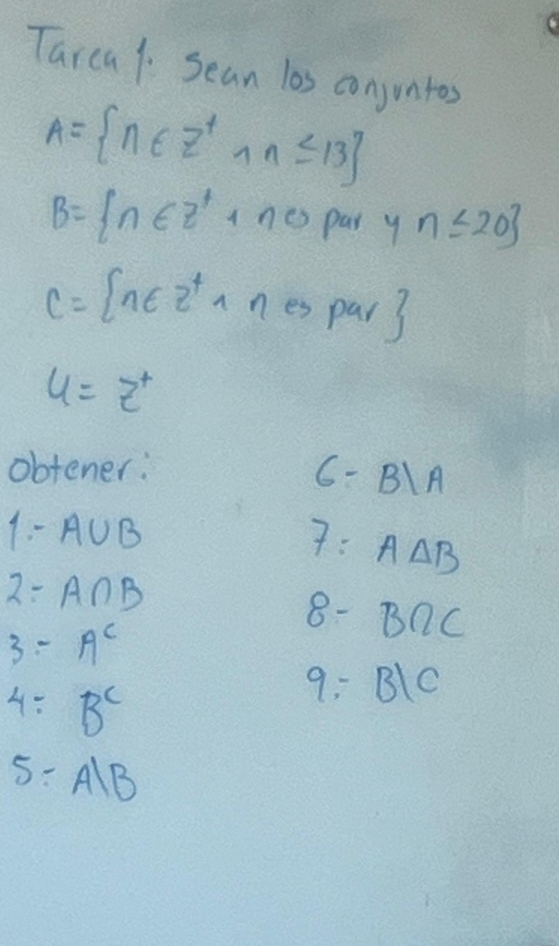 Tarea 1. Sean los conjuntos
A = {n ∈ Z⁺ ∧ n ≤ 13}
B = {n ∈ Z⁺ ∧ n es par y n ≤ 20}
C = {n ∈ Z⁺ ∧ n es par}
U = Z⁺
Obtener:
1.- A∪B
2.- A∩B
3.- Aᶜ
4.- Bᶜ
5.- A\B
6.- B\A
7.- A△B
8.- B∩C
9.- B\C